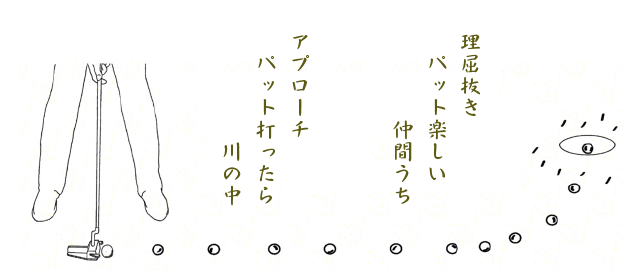 理屈抜き
パット楽しい
仲間うち
アプローチ
パット打ったら
川の中